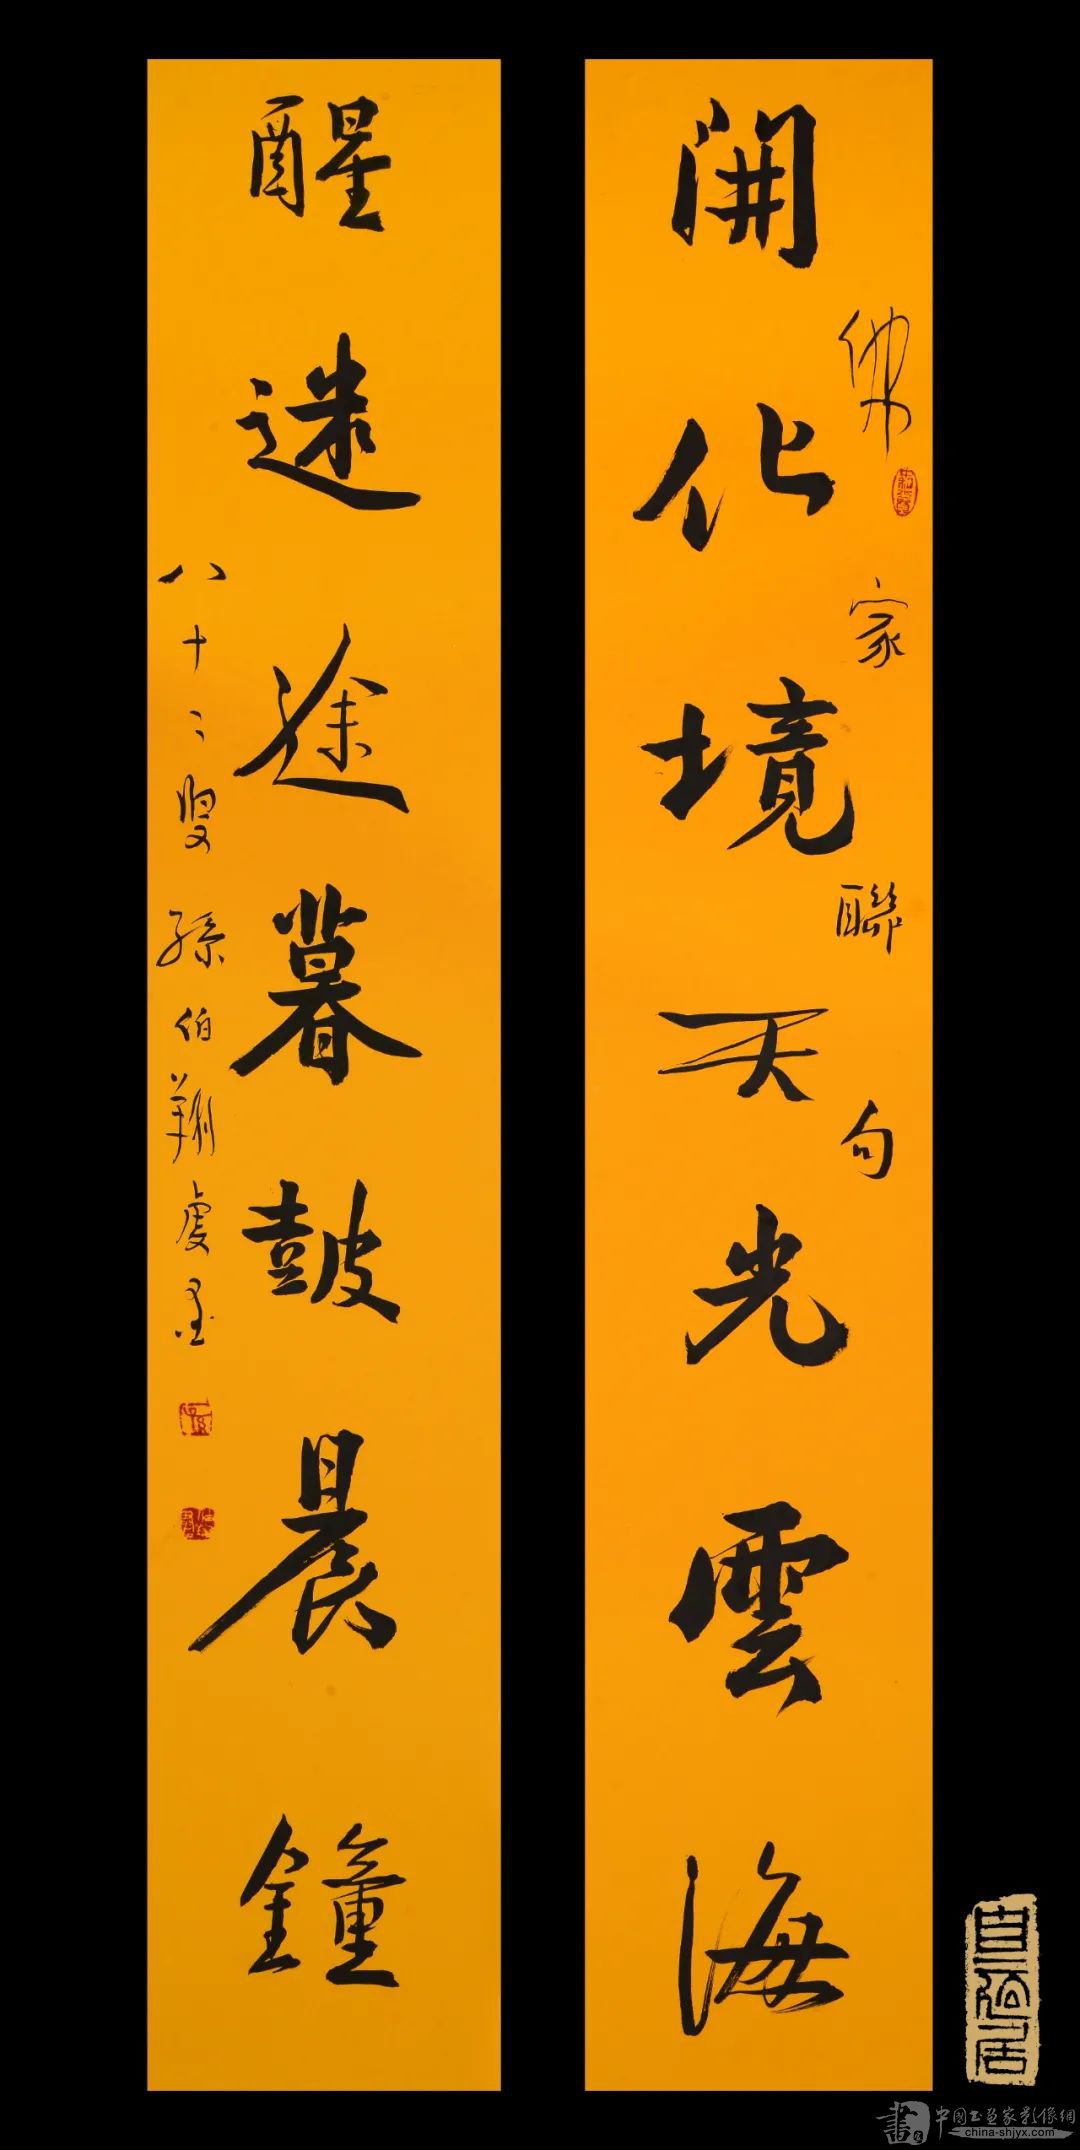 佛家聯句
開化境天光雲海
醒迷途暮鼓晨鐘
八十二叟孫伯翔虔墨
中國書畫家影像網
china-shjyx.com